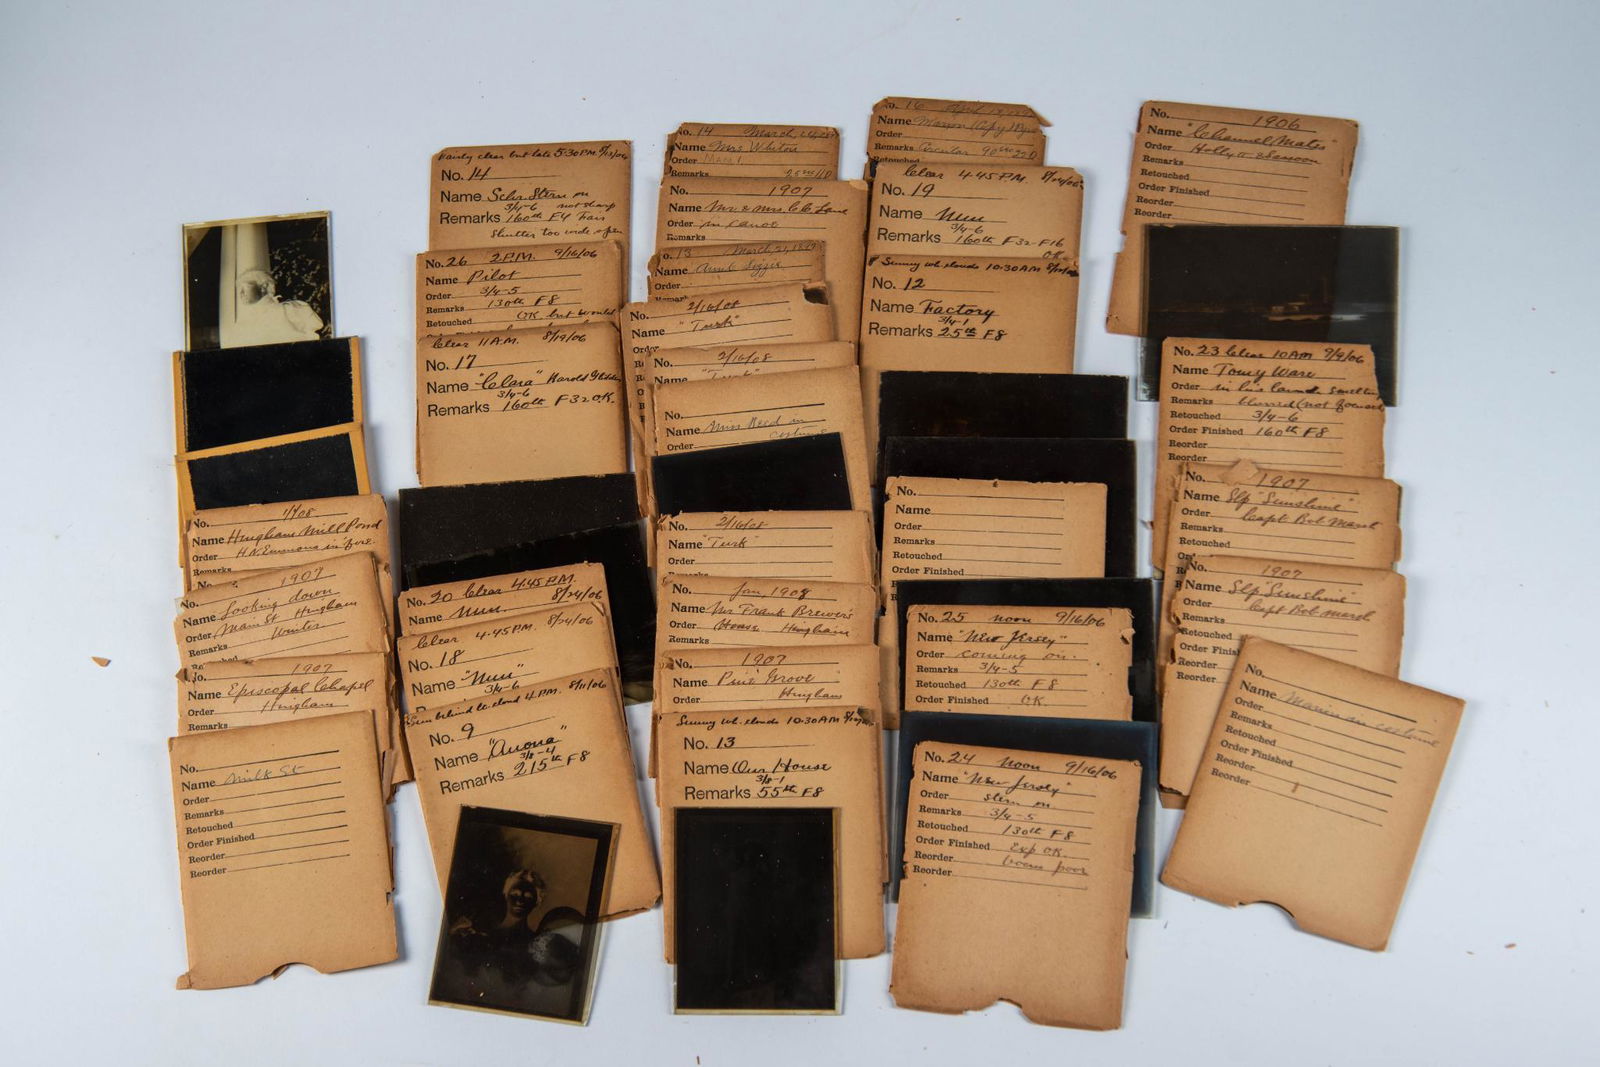 1/1/08
No.
Name Hingham Mill Pond
Order H.N. Emmons in fore.
Remarks
No.
1907
No.
Name Looking down
Order Main St Hingham
Remarks Winter
1907
No.
Name Episcopal Chapel
Order Hingham
Remarks
No.
Name Milk St
Order
Remarks
Retouched
Order Finished
Reorder
Reorder
Fairly clear but late 5:30 P.M. 9/15/06
No. 14
Name Schr. Stern on
3/4-6 not sharp
Remarks 160th F4 Fair
Shutter too wide open
No. 26 2 P.M. 9/16/06
Name Pilot
Order 3/4-5
Remarks 130th F8
Retouched OK but would
Clear 11 A.M. 8/19/06
No. 17
Name "Clara" Harold
3/4-6
Remarks 160th F32 O.K.
No. 20 Clear 4.45 P.M.
8/24/06
Name
Clear 4.45 P.M. 8/24/06
No. 18
Name
3/4-6
Sun behind lt. cloud 4 P.M. 8/11/06
No. 9
Name "Anona"
3/8-4
Remarks 215th F8
No. 14 March
Name Mrs Whiton
Order
Remarks
No. 1907
Name Mr. & Mrs. C.C. Lane
Order in canoe
Remarks
No. 13 March 21,
Name
Order
Remarks
2/16/08
No.
Name "Turk"
Order
2/16/08
No.
Name "Turk"
No.
Name Miss Reed in
Order costume
No. 2/16/08
Name "Turk"
Order
Remarks
No. Jan 1908
Name Mr Frank Brewer's
Order House Hingham
Remarks
No. 1907
Name Pine Grove
Order Hingham
Sunny wh. clouds 10:30 AM
No. 13
Name Our House
3/8-1
Remarks 55th F8
No. 16 April
Name Marion (Copy)
Order
Remarks Circular
Retouched
Clear 4.45 P.M. 8/24/06
No. 19
Name
3/4-6
Remarks 160th F32-F16
OK.
Sunny wh. clouds 10:30 AM
No. 12
Name Factory
3/4-1
Remarks 25th F8
No.
Name
Order
Remarks
Retouched
Order Finished
No. 25 noon 9/16/06
Name "New Jersey"
Order coming on.
Remarks 3/4-5
Retouched 130th F8
Order Finished OK.
No. 24 noon 9/16/06
Name "New Jersey"
Order stern on
Remarks 3/4-5
Retouched 130th F8
Order Finished Exp OK.
Reorder poor
Reorder
No. 1906
Name "Channel Mates"
Order
Remarks
Retouched
Order Finished
Reorder
No. 23 Clear 10 AM 9/9/06
Name Tomy Ware
Order in his launch
Remarks blurred (not focused
Retouched 3/4-6
Order Finished 160th F8
Reorder
Reorder
No. 1907
Name Slp "Sunshine"
Order Capt Bob Marsh
Remarks
Retouched
No. 1907
Name Slp "Sunshine"
Order Capt Bob Marsh
Remarks
Retouched
Order Finished
Remarks
Retouched
No.
Name Marion in costume
Order
Remarks
Retouched
Order Finished
Reorder
Reorder